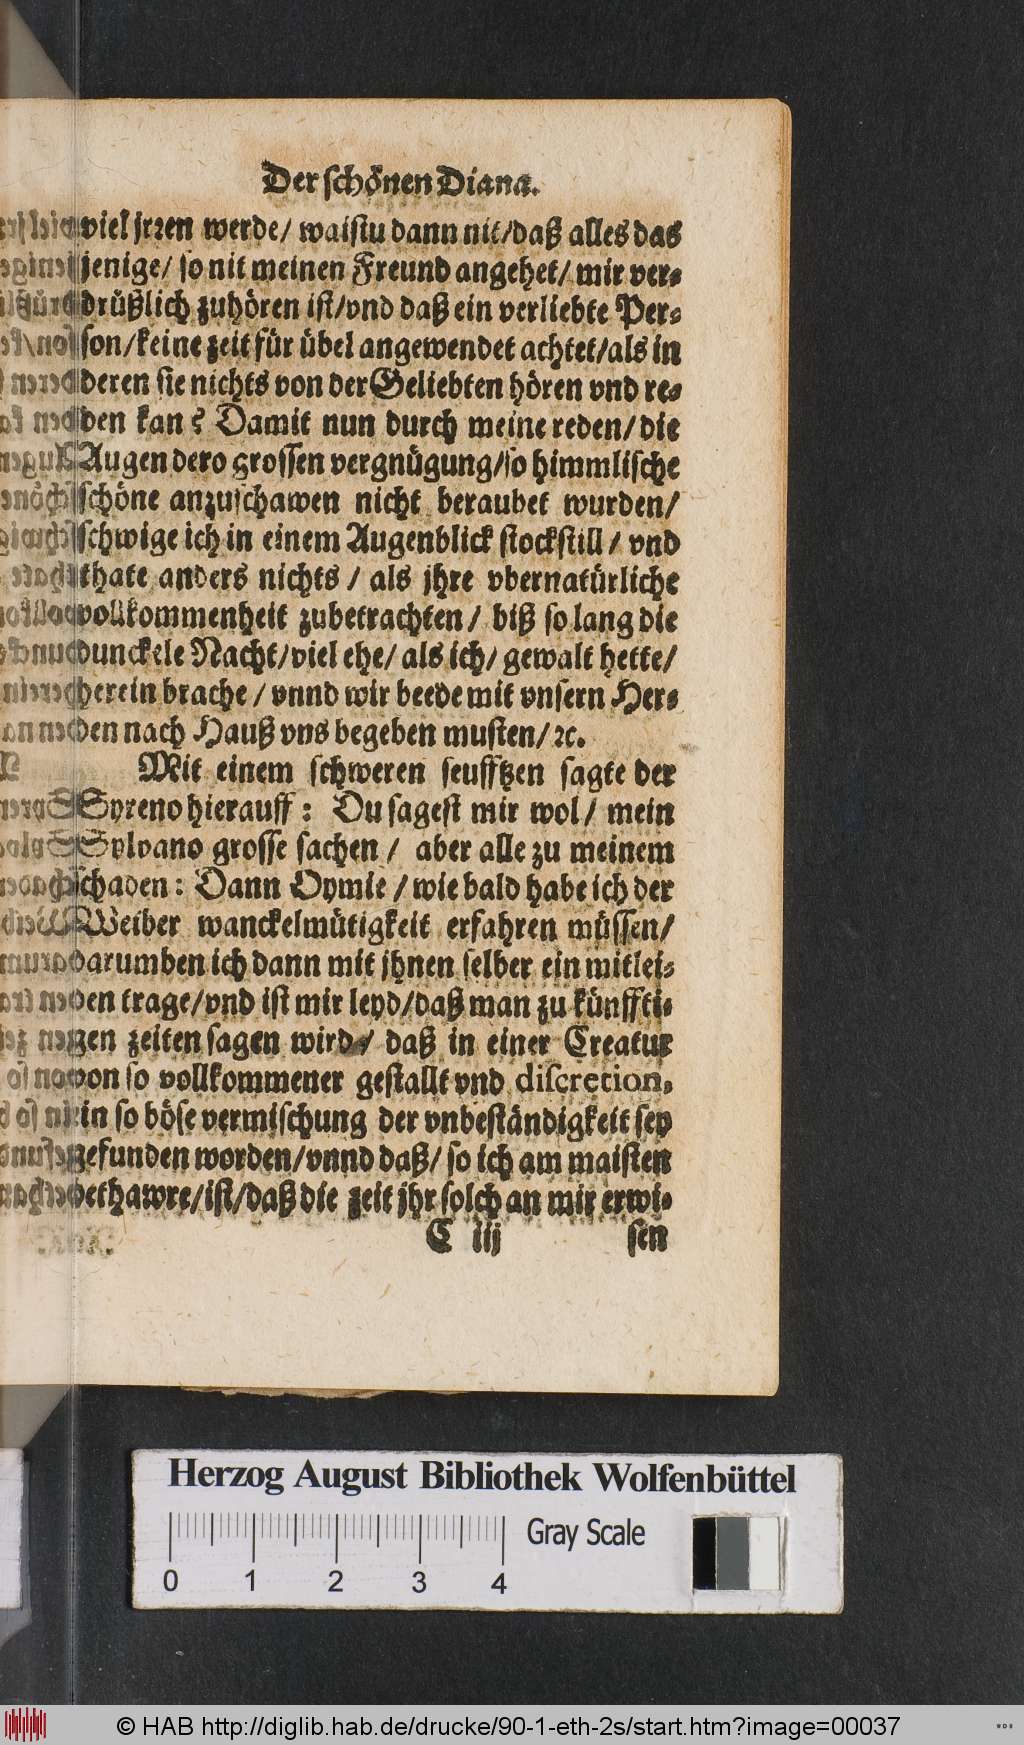 Der schönen Diana.
viel jrꝛen werde/ waistu dann nit/ daß alles das
jenige/ so nit meinen Freund angehet/ mir ver-
drüßlich zuhören ist/ vnd daß ein verliebte Per-
son/ keine zeit für übel angewendet achtet/ als in
deren sie nichts von der Geliebten hören vnd re-
den kan? Damit nun durch meine reden/ die
Augen dero grossen vergnügung/ so himmlische
schöne anzuschawen nicht beraubet wurden/
schwige ich in einem Augenblick stockstill/ vnd
thate anders nichts / als jhre vbernatürliche
vollkommenheit zubetrachten / biß so lang die
dunckele Nacht/ viel ehe/ als ich/ gewalt hette/
herein brache / vnnd wir beede mit vnsern Her-
den nach Hauß vns begeben musten/ ꝛc.
Mit einem schweren seufftzen sagte der
Syreno hierauff : Du sagest mir wol/ mein
Sylvano grosse sachen / aber alle zu meinem
schaden : Dann Oymie / wie bald habe ich der
Weiber wanckelmütigkeit erfahren müssen/
darumben ich dann mit jhnen selber ein mitlei-
den trage/ vnd ist mir leyd/ daß man zu künffti-
gen zeiten sagen wird/ daß in einer Creatur
von so vollkommener gestallt vnd discretion,
in so böse vermischung der vnbeständigkeit sey
gefunden worden/ vnnd daß/ so ich am maisten
bethawre/ ist/ daß die zeit jhr solch an mir erwi-
C iij sen
Herzog August Bibliothek Wolfenbüttel
Gray Scale
0 1 2 3 4
© HAB http://diglib.hab.de/drucke/90-1-eth-2s/start.htm?image=00037